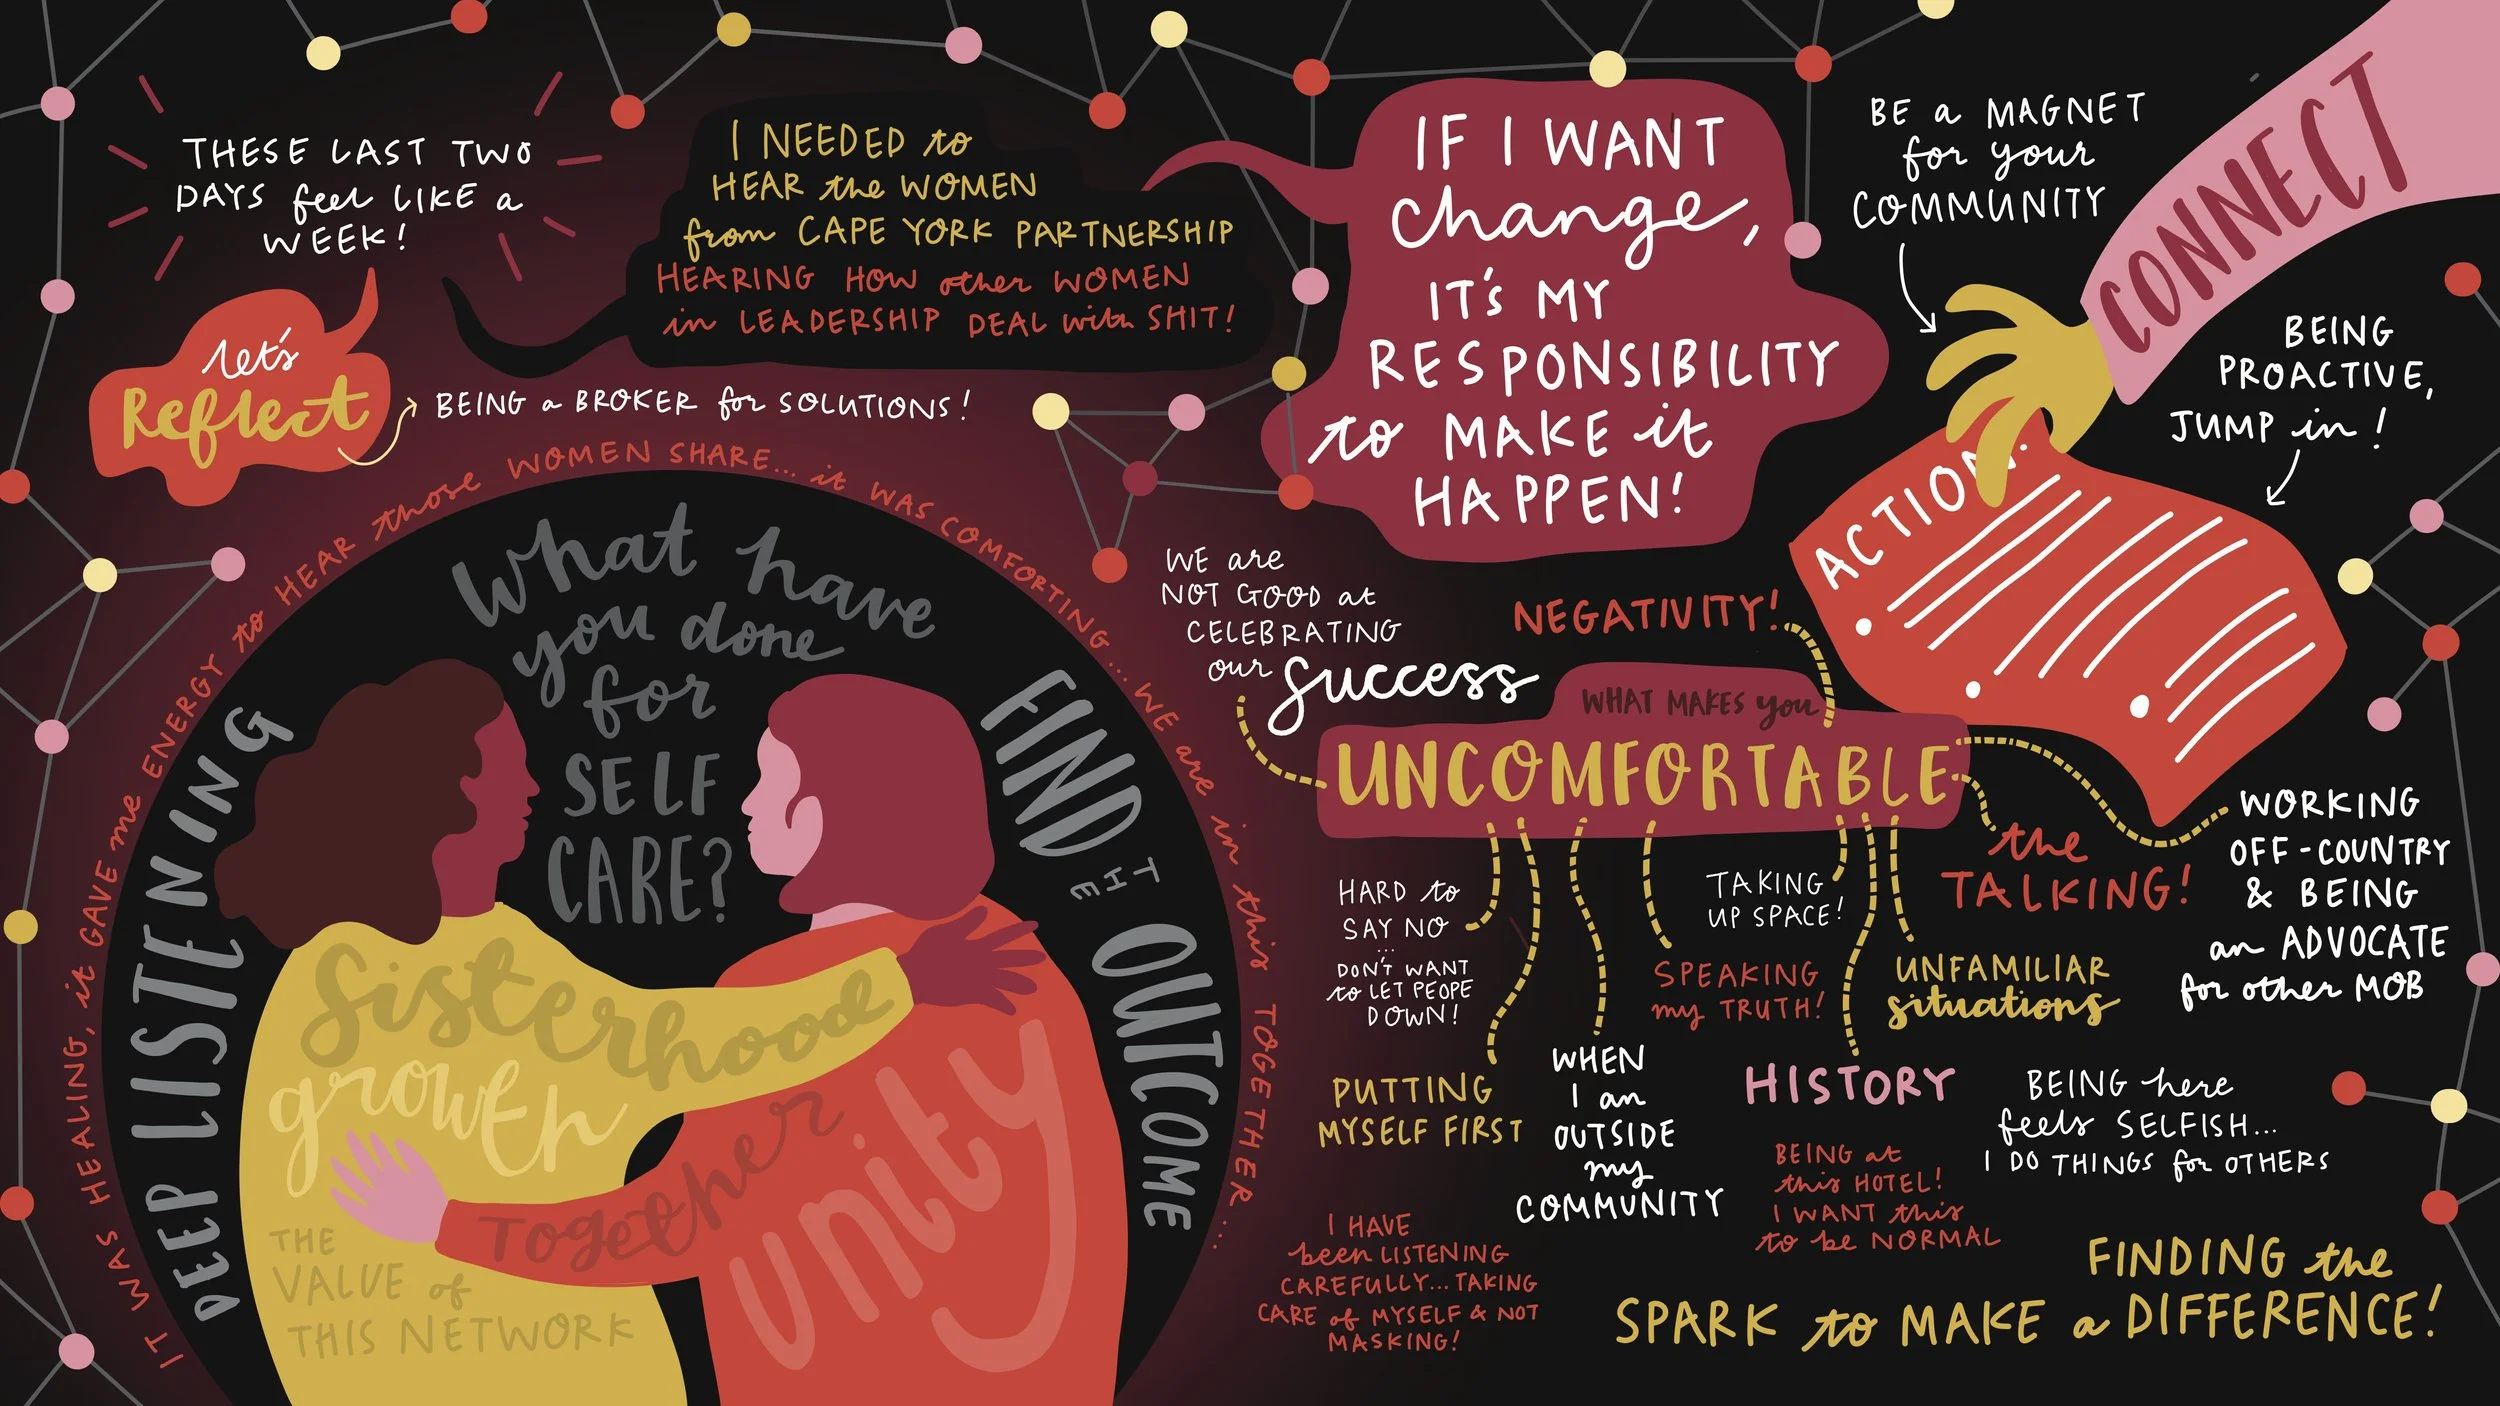 THESE LAST TWO
DAYS feel LIKE a
WEEK!
let's
Reflect
BEING a BROKER for SOLUTIONS!
I NEEDED to
HEAR the WOMEN
from CAPE YORK PARTNERSHIP
HEARING HOW other WOMEN
in LEADERSHIP DEAL with SHIT!
IF I WANT
change,
IT's MY
RESPONSIBILITY
to MAKE it
HAPPEN!
BE a MAGNET
for your
COMMUNITY
CONNECT
BEING
PROACTIVE,
JUMP in!
ACTION:
IT WAS HEALING, it GAVE me ENERGY to HEAR those WOMEN SHARE... it WAS COMFORTING... WE are in this TOGETHER...
DEEP LISTENING
What have
you done
for
SELF
CARE?
FIND
THE
OUTCOME
Sisterhood
growth
Together
Unity
THE
VALUE of
THIS NETWORK
WE are
NOT GOOD at
CELEBRATING
our Success
NEGATIVITY!
WHAT MAKES you
UNCOMFORTABLE
the
TALKING!
WORKING
OFF-COUNTRY
& BEING
an ADVOCATE
for other MOB
HARD to
SAY NO
...
DON'T WANT
to LET PEOPE
DOWN!
TAKING
UP SPACE!
SPEAKING
my TRUTH!
UNFAMILIAR
situations
PUTTING
MYSELF FIRST
WHEN
I am
OUTSIDE
my
COMMUNITY
HISTORY
BEING here
feels SELFISH...
I DO THINGS for OTHERS
BEING at
this HOTEL!
I WANT this
to be NORMAL
I HAVE
been LISTENING
CAREFULLY... TAKING
CARE of MYSELF & NOT
MASKING!
FINDING the
SPARK to MAKE a DIFFERENCE!